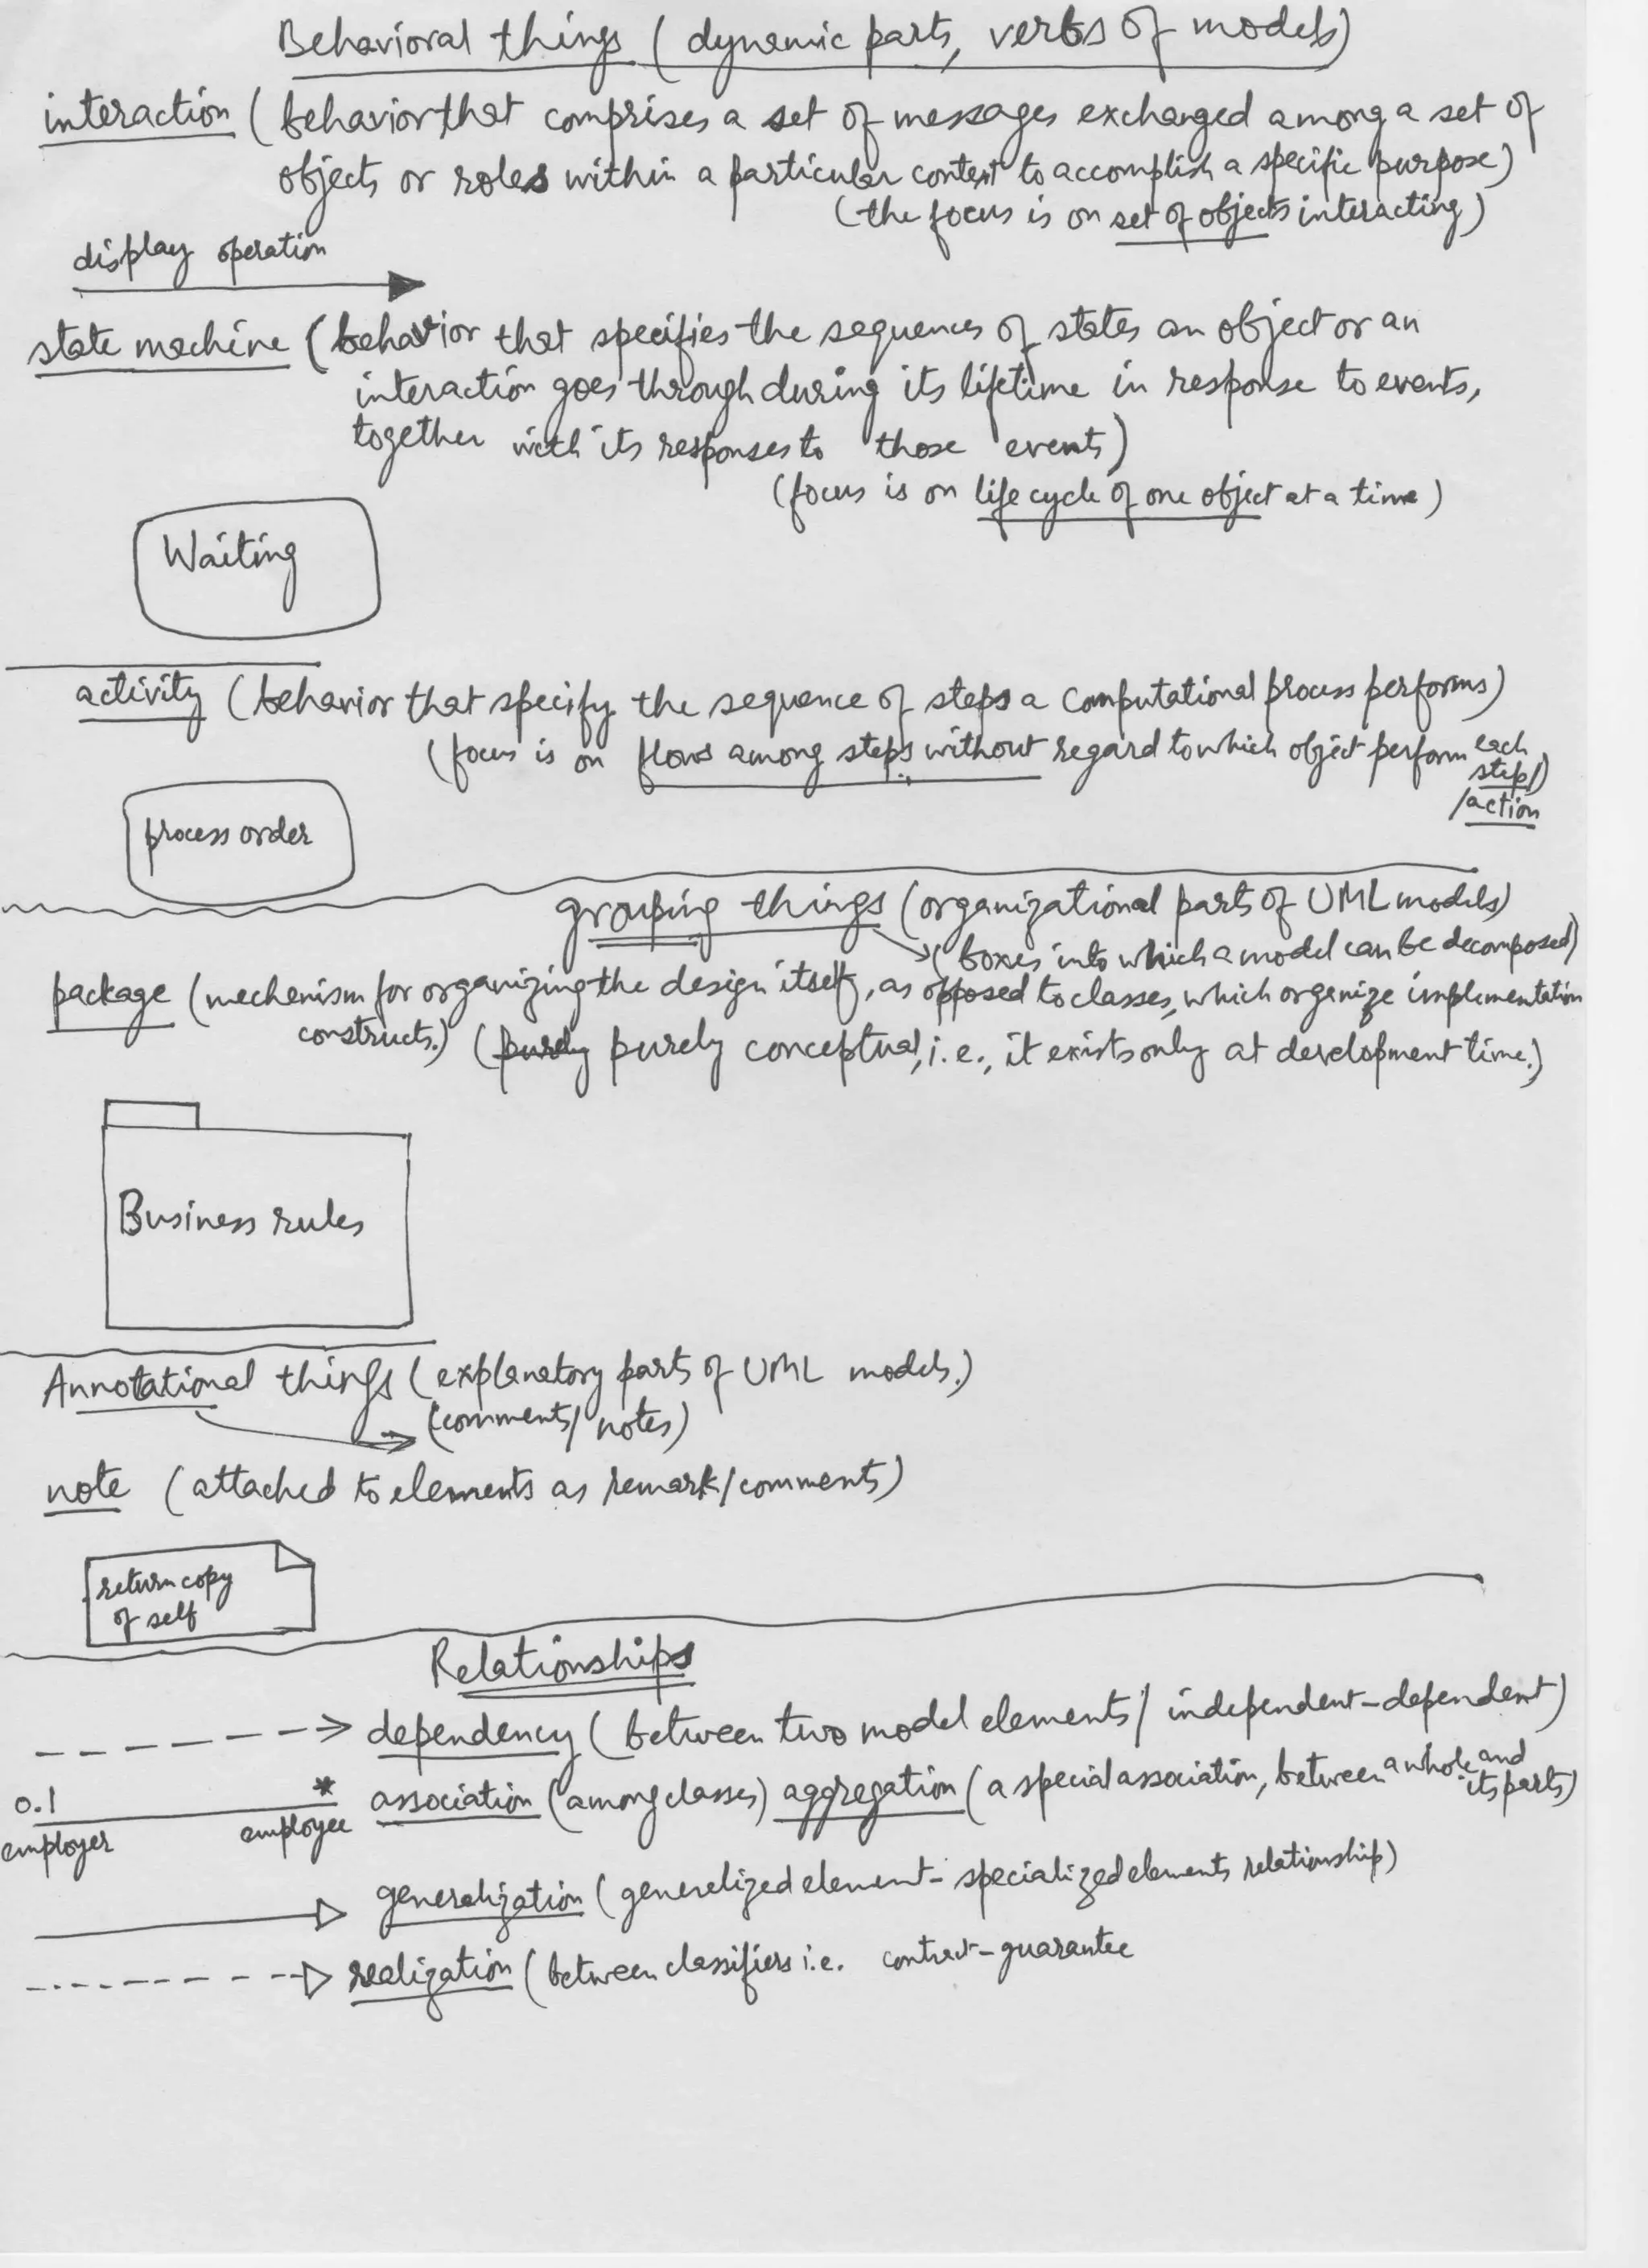 Behavioral things (dynamic parts, verbs of models)
interaction (behavior that comprises a set of messages exchanged among a set of
objects or roles within a particular context to accomplish a specific purpose)
(the focus is on set of objects interacting)
display operation
state machine (behavior that specifies the sequences of states an object or an
interaction goes through during its lifetime in response to events,
together with its responses to those events)
(focus is on life cycle of one object at a time)
Waiting
activity (behavior that specify the sequence of steps a computational process performs)
(focus is on flows among steps without regard to which object perform each
step)
/action
process order
grouping things (organizational parts of UML models)
(boxes into which a model can be decomposed)
package (mechenism for organizing the design itself, as opposed to classes, which organize implementation
constructs.) (purely purely conceptual, i.e., it exists only at development time.)
Business rules
Annotational things (explanatory parts of UML models.)
(comments/ notes)
note (attached to elements as remark/comments)
return copy
of self
Relationships
dependency (between two model elements/ independent-dependent)
0.1 * association (among classes) aggregation (a special association, between a whole and
its parts)
employer employee
generalization (generelized element- specialized elements relationship)
realization (between classifiers i.e. contract-guarantee